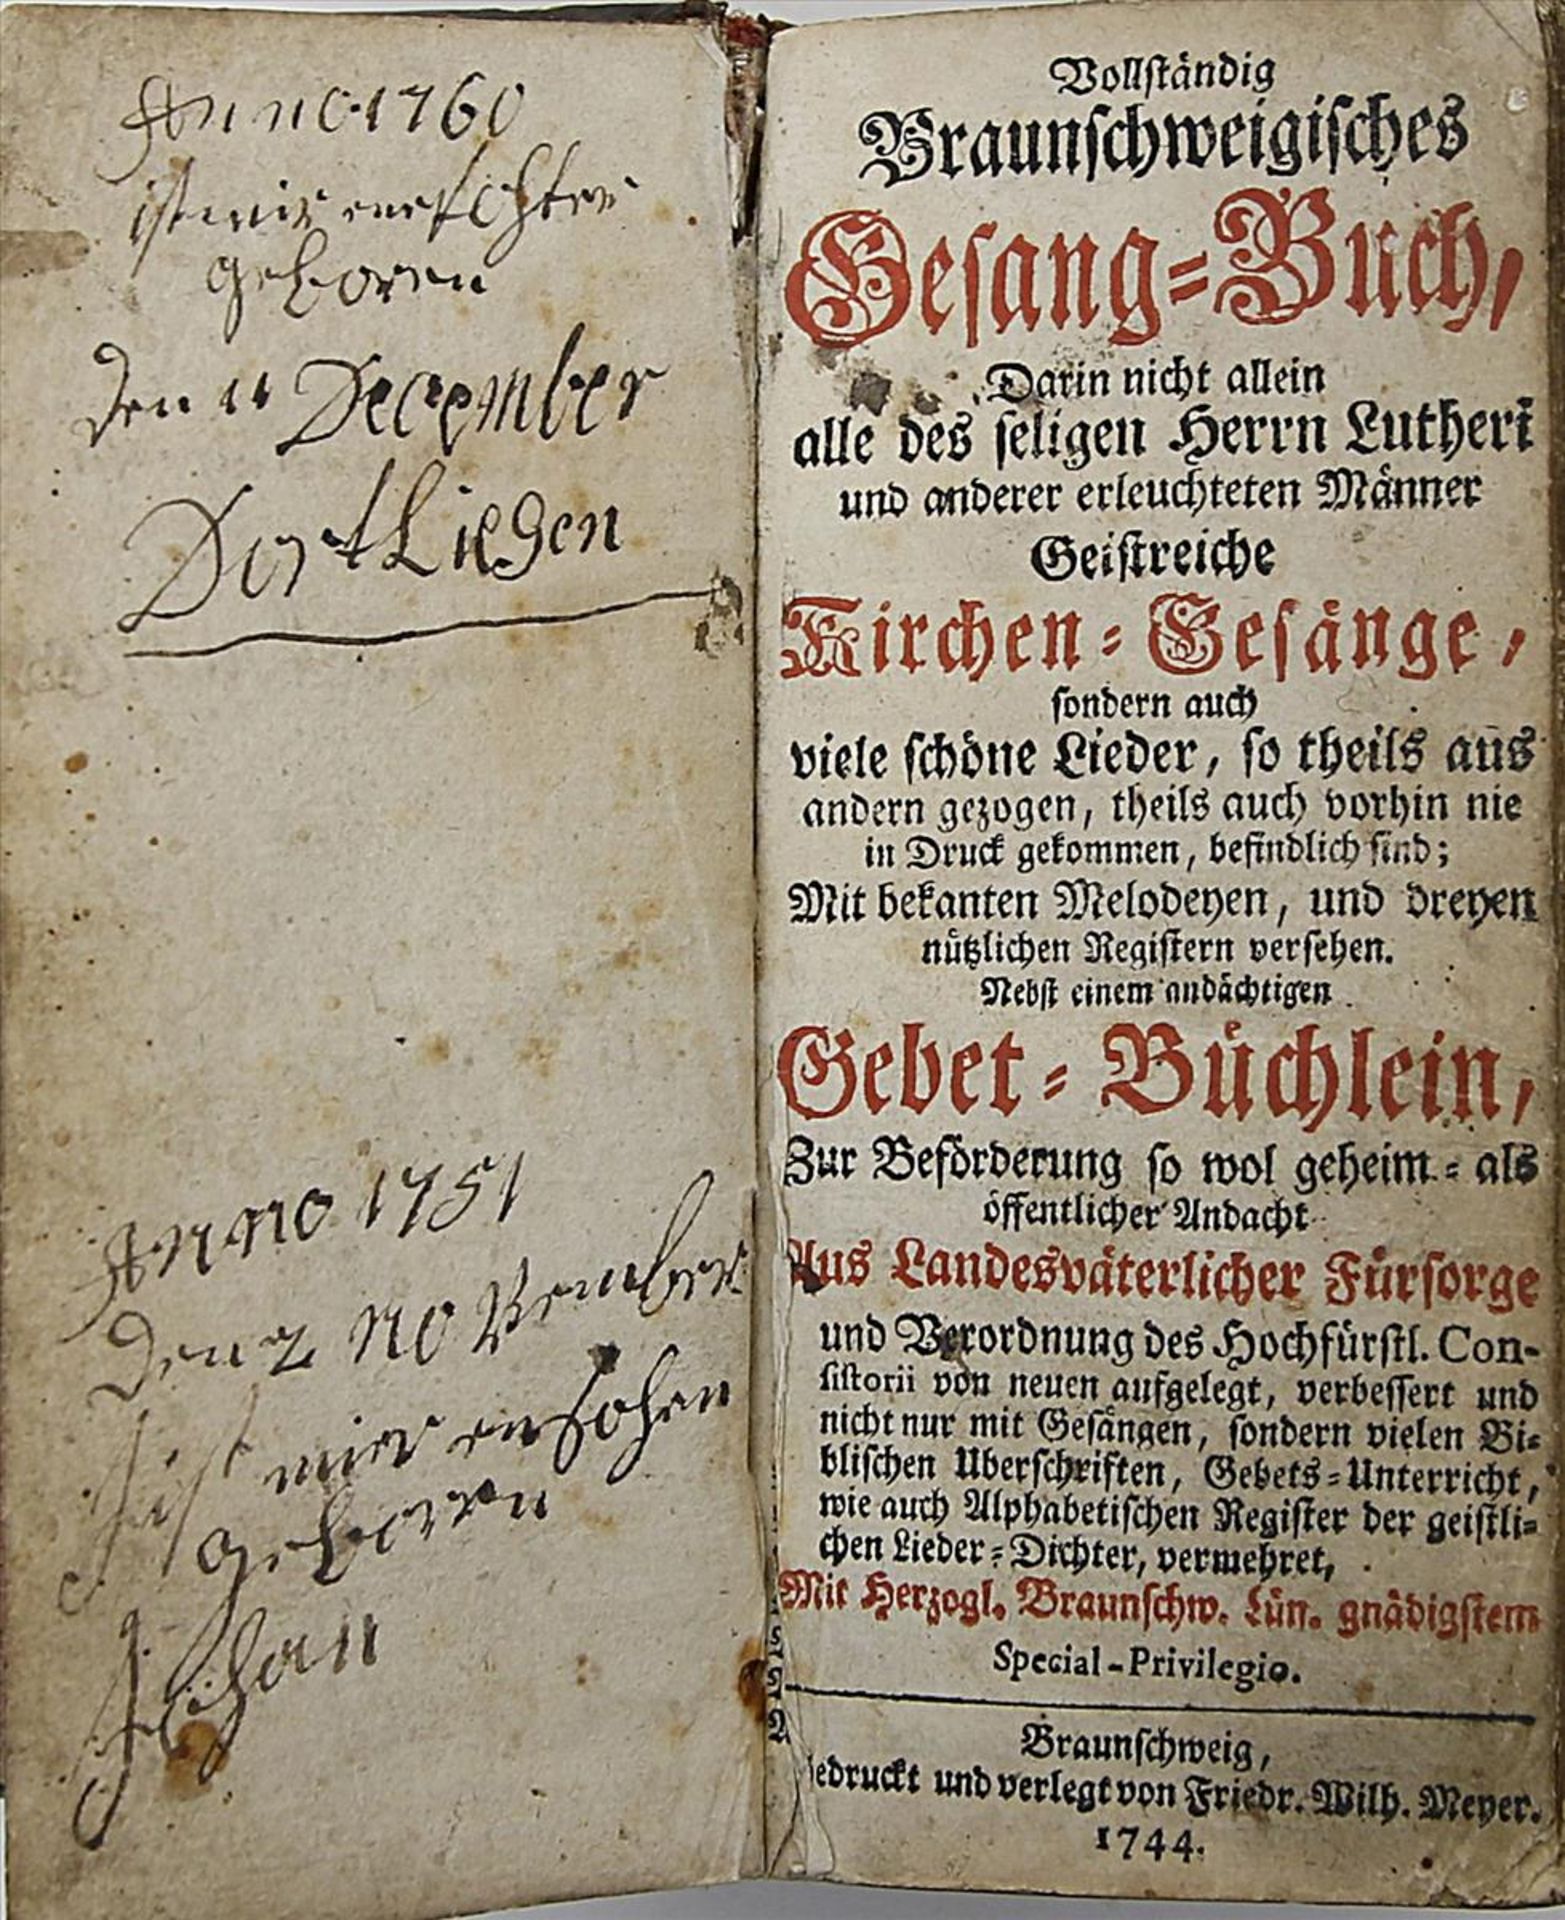 Anno 1760
ist mir eine tochter
geboren
den 11 December
Dort Liesen
Anno 1751
den 2 November
ist mir ein sohen
geboren
Johan
Vollſtändig
Braunſchweigiſches
Geſang-Buch,
Darin nicht allein
alle des ſeligen Herrn Lutheri
und anderer erleuchteten Männer
Geiſtreiche
Kirchen-Geſänge,
ſondern auch
viele ſchöne Lieder, ſo theils aus
andern gezogen, theils auch vorhin nie
in Druck gekommen, befindlich ſind;
Mit bekanten Melodeyen, und dreyen
nützlichen Regiſtern verſehen.
Nebſt einem andächtigen
Gebet-Büchlein,
Zur Beförderung ſo wol geheim- als
öffentlicher Andacht
Aus Landesväterlicher Fürſorge
und Verordnung des Hochfürſtl. Con-
ſiſtorii von neuen aufgelegt, verbeſſert und
nicht nur mit Geſängen, ſondern vielen Bi-
bliſchen Uberſchriften, Gebets-Unterricht,
wie auch Alphabetiſchen Regiſter der geiſtli-
chen Lieder-Dichter, vermehret,
Mit Herzogl. Braunſchw. Lün. gnädigſtem
Special-Privilegio.
Braunſchweig,
edruckt und verlegt von Friedr. Wilh. Meyer.
1744.